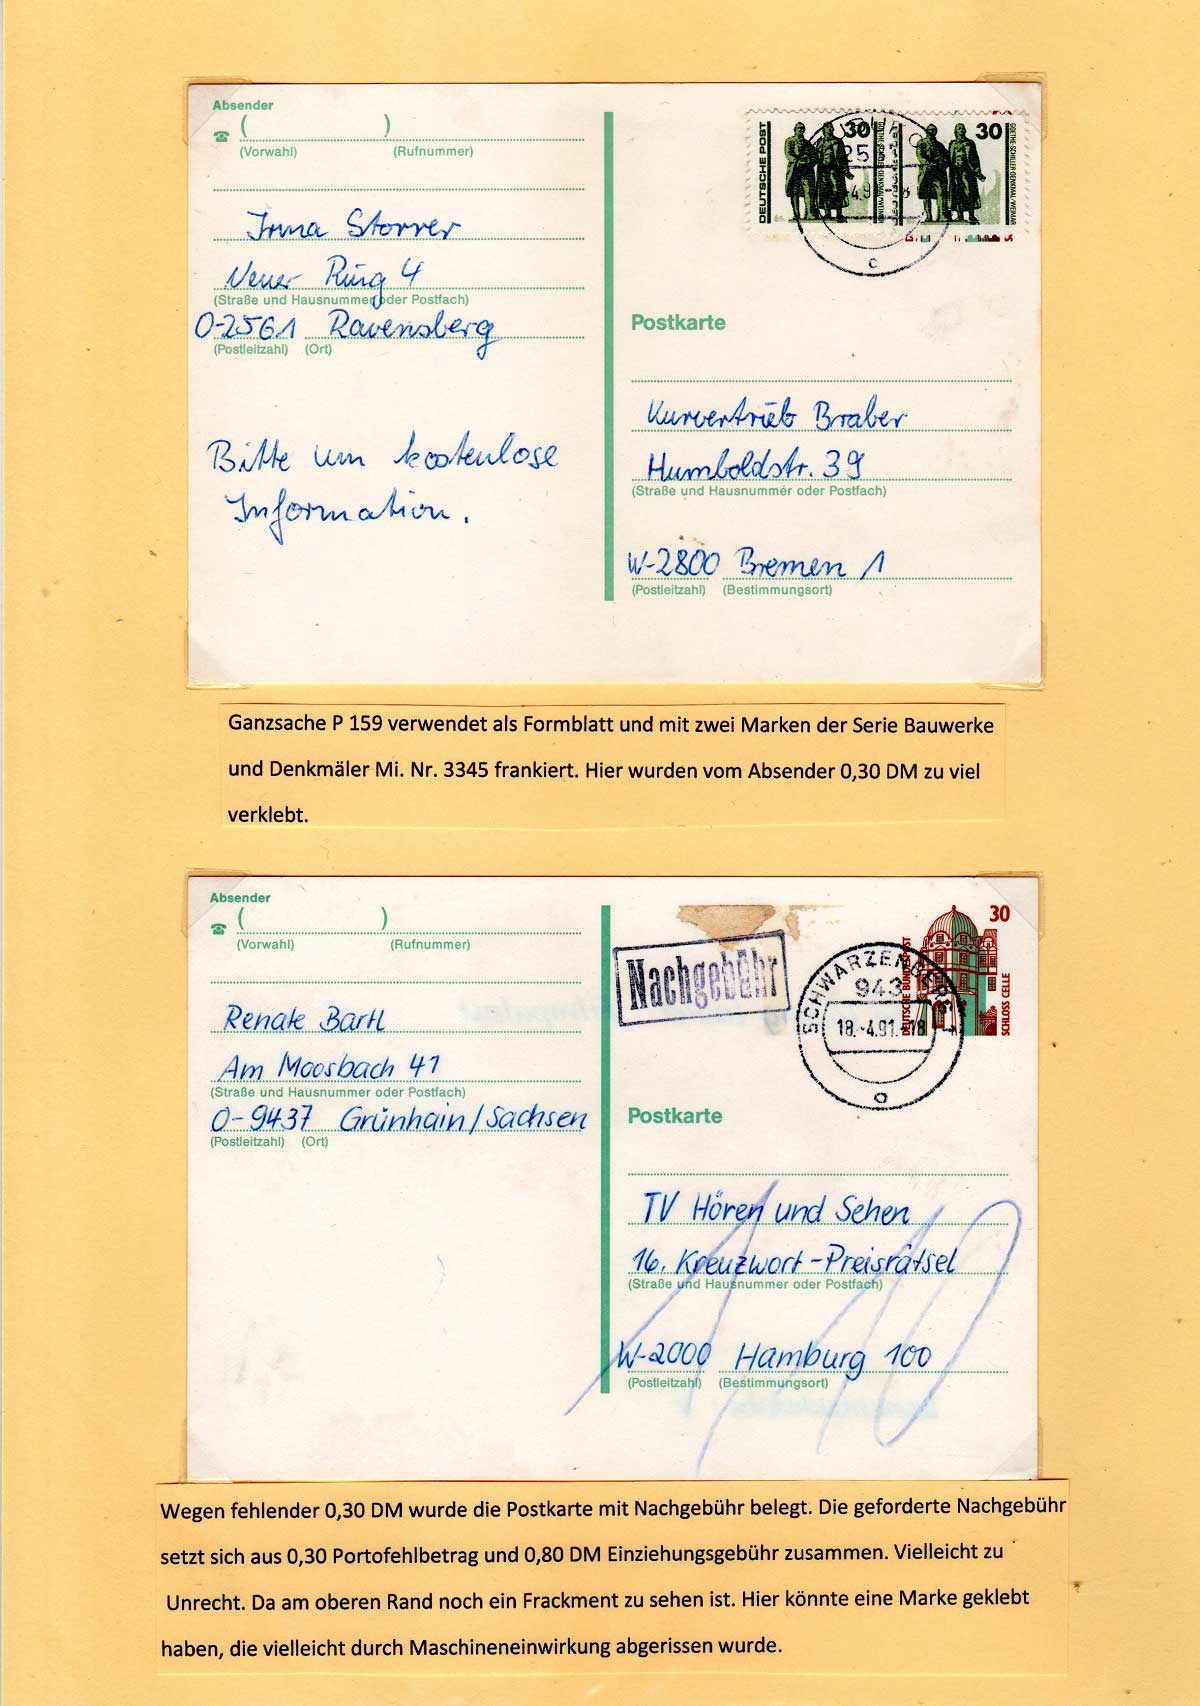 Absender
☎ ( )
(Vorwahl) (Rufnummer)
Irma Storrer
Neuer Ring 4
(Straße und Hausnummer oder Postfach)
O-2561 Ravensberg
(Postleitzahl) (Ort)
Bitte um kostenlose
Information.
DEUTSCHE POST 30 GOETHE-SCHILLER-DENKMAL-WEIMAR
30 GOETHE-SCHILLER-DENKMAL-WEIMAR
c
Postkarte
Kurvertrieb Braber
Humboldstr. 39
(Straße und Hausnummer oder Postfach)
W-2800 Bremen 1
(Postleitzahl) (Bestimmungsort)
Ganzsache P 159 verwendet als Formblatt und mit zwei Marken der Serie Bauwerke
und Denkmäler Mi. Nr. 3345 frankiert. Hier wurden vom Absender 0,30 DM zu viel
verklebt.
Absender
☎ ( )
(Vorwahl) (Rufnummer)
Renate Bartl
Am Moosbach 41
(Straße und Hausnummer oder Postfach)
O-9437 Grünhain/Sachsen
(Postleitzahl) (Ort)
Nachgebühr
SCHWARZENBERG 1
943
18.-4.91.-18
o
30
DEUTSCHE BUNDESPOST
SCHLOSS CELLE
Postkarte
TV Hören und Sehen
16. Kreuzwort-Preisrätsel
(Straße und Hausnummer oder Postfach)
1,10
W-2000 Hamburg 100
(Postleitzahl) (Bestimmungsort)
Wegen fehlender 0,30 DM wurde die Postkarte mit Nachgebühr belegt. Die geforderte Nachgebühr
setzt sich aus 0,30 Portofehlbetrag und 0,80 DM Einziehungsgebühr zusammen. Vielleicht zu
Unrecht. Da am oberen Rand noch ein Frackment zu sehen ist. Hier könnte eine Marke geklebt
haben, die vielleicht durch Maschineneinwirkung abgerissen wurde.